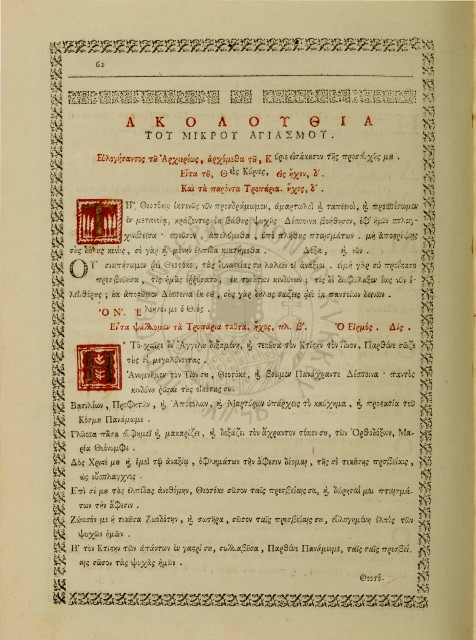 62
ΑΚΟΛΟΥΘΙΑ
ΤΟΥ ΜΙΚΡΟΥ ΑΓΙΑΣΜΟΥ.
Εὐλογήσαντος τοῦ Ἀρχιερέως, ἀρχόμεθα τοῦ, Κύριε εἰσάκουσον τῆς προσευχῆς μου.
Εἶτα τὸ, Θεὸς Κύριος, εἰς ἦχον, δ'.
Καὶ τὰ παρόντα Τροπάρια. ἦχος, δ'.
Τῇ Θεοτόκῳ ἐκτενῶς νῦν προσδράμωμεν, ἁμαρτωλοὶ καὶ ταπεινοὶ, καὶ προσπέσωμεν
ἐν μετανοίᾳ, κράζοντες ἐκ βάθους ψυχῆς· Δέσποινα βοήθησον, ἐφ' ἡμῖν σπλαγ-
χνισθεῖσα· σπεῦσον, ἀπολλύμεθα, ὑπὸ πλήθους πταισμάτων. μὴ ἀποστρέψῃς
σοὺς δούλους κενοὺς, σὲ γὰρ καὶ μόνην ἐλπίδα κεκτήμεθα. Δόξα, καὶ νῦν.
Οὐ σιωπήσωμεν ἀεὶ Θεοτόκε, τὰς δυναστείας σου λαλεῖν οἱ ἀνάξιοι. εἰμὴ γὰρ σὺ προΐστασο
πρεσβεύουσα, τίς ἡμᾶς ἐρρύσατο, ἐκ τοσούτων κινδύνων; τίς δὲ διεφύλαξεν ἕως νῦν ἐ-
λευθέρους; οὐκ ἀποστῶμεν Δέσποινα ἐκ σοῦ, σοὺς γὰρ δούλους σώζεις ἀεὶ ἐκ παντοίων δεινῶν.
Ὁ Ν'. Ἐλέησόν με ὁ Θεός.
Εἶτα ψάλλομεν τὰ Τροπάρια ταῦτα, ἦχος, πλ. β'. Ὁ Εἱρμός. Δίς.
Ἡ Τὸ χαῖρε δι' Ἀγγέλου δεξαμένη, καὶ τεκοῦσα τὸν Κτίστην τὸν ἴδιον, Παρθένε σῶζε
τοὺς σὲ μεγαλύνοντας.
Ἀνυμνοῦμεν τὸν Υἱόν σου, Θεοτόκε, καὶ βοῶμεν Πανάχραντε Δέσποινα· παντὸς
κινδύνου ῥῦσαι τοὺς οἰκέτας σου.
Βασιλέων, Προφητῶν, καὶ Ἀποστόλων, καὶ Μαρτύρων ὑπάρχεις τὸ καύχημα, καὶ προστασία τοῦ
Κόσμου Πανάμωμε.
Γλῶσσα πᾶσα εὐφημεῖ καὶ μακαρίζει, καὶ δοξάζει τὸν ἄχραντον τόκον σου, τῶν Ὀρθοδόξων, Μα-
ρία Θεόνυμφε.
Δὸς Χριστέ μου καὶ ἐμοὶ τῷ ἀναξίῳ, ὀφλημάτων τὴν ἄφεσιν δέομαι, τῆς σὲ τεκούσης πρεσβείαις,
ὡς εὔσπλαγχνος.
Ἐπὶ σέ μου τὰς ἐλπίδας ἀνεθέμην, Θεοτόκε σῶσον ταῖς πρεσβείαις σου, καὶ δώρησαί μοι πταισμά-
των τὴν ἄφεσιν.
Ζώωσόν με ἡ τεκοῦσα Ζωοδότην, καὶ σωτῆρα, σῶσον ταῖς πρεσβείαις σου, εὐλογημένη ἐλπὶς τῶν
ψυχῶν ἡμῶν.
Ἡ τὸν Κτίστην τῶν ἁπάντων ἐν γαστρί σου, συλλαβοῦσα, Παρθένε Πανάμωμε, ταῖς σαῖς πρεσβεί-
αις σῶσον τὰς ψυχὰς ἡμῶν.
Θεοτό-